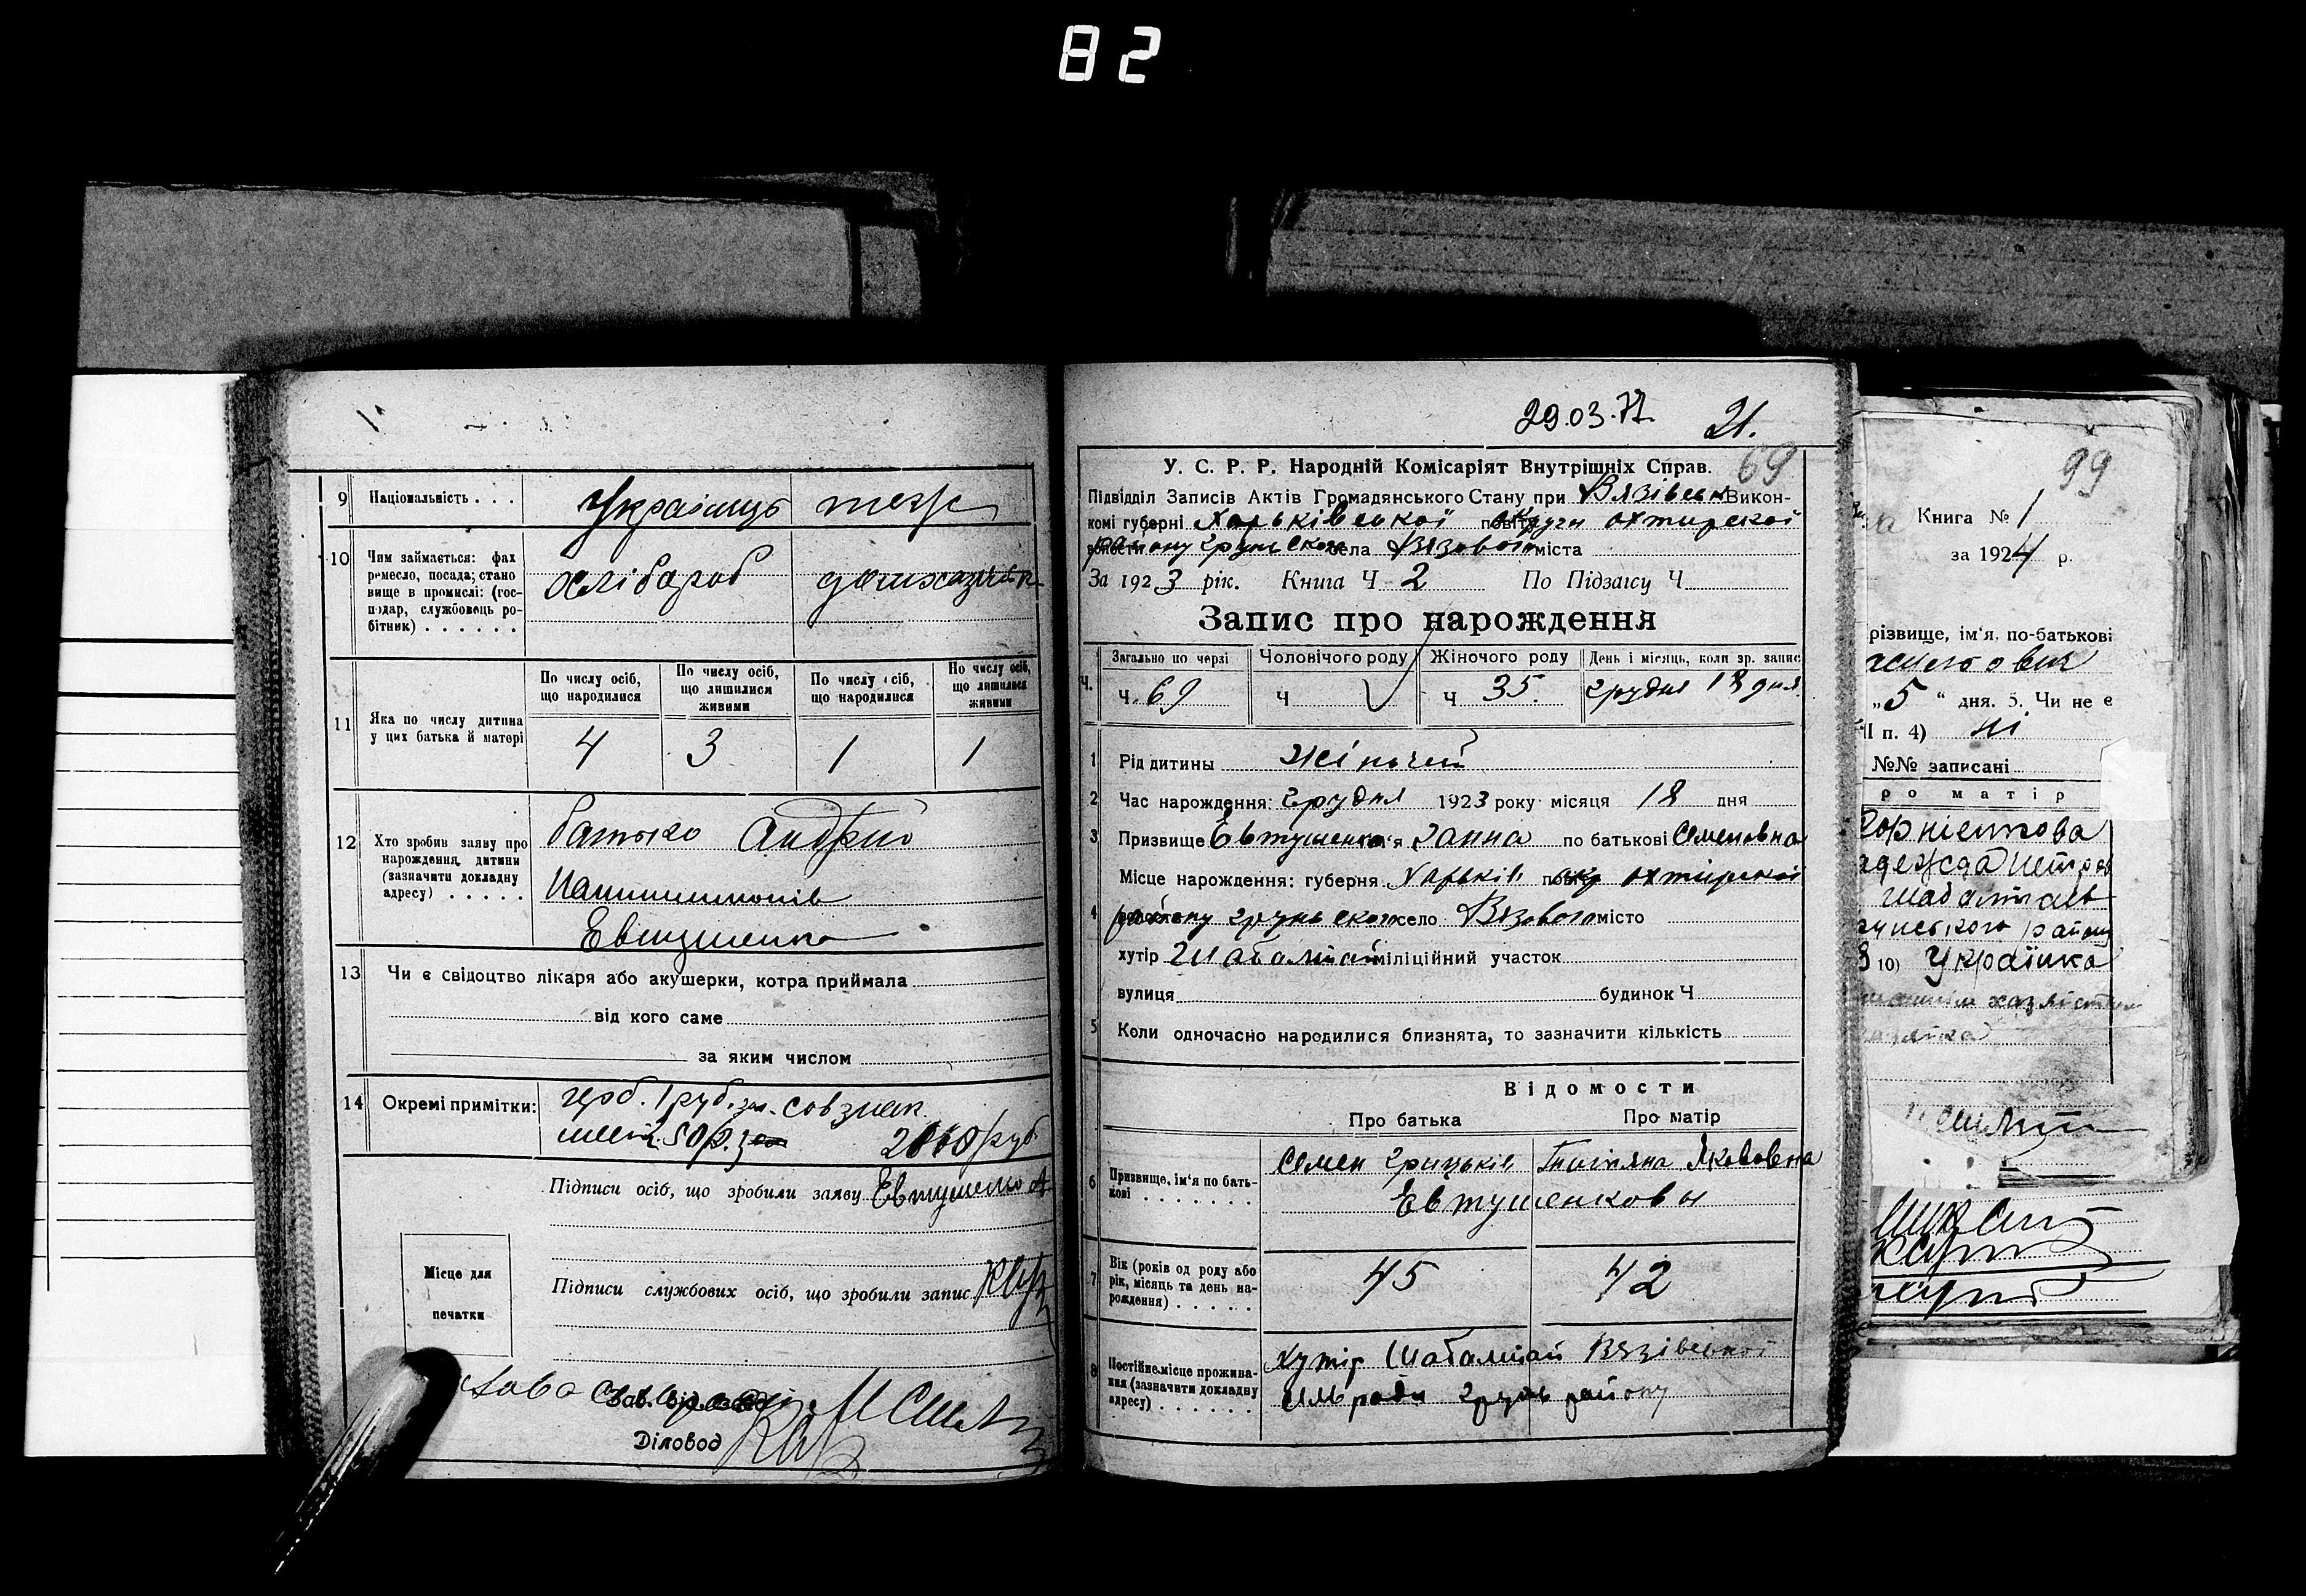 82
9 Національність . . . Українець тоже
10 Чим займається: фах
ремесло, посада; стано
вище в промислі: (гос-
подар, службовець ро-
бітник) . . . . . .
хлібороб
По числу осіб, що народилися
По числу осіб, що лишилися живими
По числу осіб, що народилися
По числу осіб, що лишилися живими
11 Яка по числу дитина
у цих батька й матері
4 3 1 1
12 Хто зробив заяву про
нарождення дитини
(зазначити докладну
адресу) . . . . .
батько Андрій
Евтушенко
13 Чи є свідоцтво лікаря або акушерки, котра приймала
від кого саме
за яким числом
14 Окремі примітки:
герб. 1 руб. зол. совзнак.
Підписи осіб, що зробили заяву Евтушенко А
Місце для
печатки
Підписи службових осіб, що зробили запис
Діловод
29.03.77. 21.
69
У. С. Р. Р. Народній Комісаріят Внутрішніх Справ.
Підвідділ Записів Актів Громадянського Стану при Вязівськ Викон-
комі губерні Харьківської округи охтирской
району грунського села Вязового міста
За 1923 рік. Книга Ч 2 По Підзагсу Ч
Запис про нарождення
Загально по черзі Чоловічого роду Жіночого роду День і місяць, коли зр. запис
Ч. Ч. 69 Ч Ч 35. грудня 18 дня.
1 Рід дитины жіночей
2 Час нарождення: Грудня 1923 року місяця 18 дня
3 Призвище Євтушенко ім'я Ганна по батькові Семеновна
Місце нарождення: губерня Харьків окр охтирской
4 району грунського село Вязового місто
хутір Шабалтай міліційний участок
вулиця будинок Ч
5 Коли одночасно народилися близнята, то зазначити кількість
Відомости
Про батька Про матір
6 Призвище, ім'я по бать-
кові . . . . . . .
Семен Грицьків Татіяна Якововна
Евтушенковы
7 Вік (років од роду або
рік, місяць та день на-
рождення) . . . . .
45 42
8 Постійне місце прожива-
ння (зазначити докладну
адресу) . . . . . .
Хутір Шабалтай Вязівської
сільради Грунь району
99
Книга № 1
за 1924 р.
різвище, ім'я, по-батькові
„5“ дня. 5. Чи не є
II п. 4) ні
№№ записані
ро матір
10) Українка